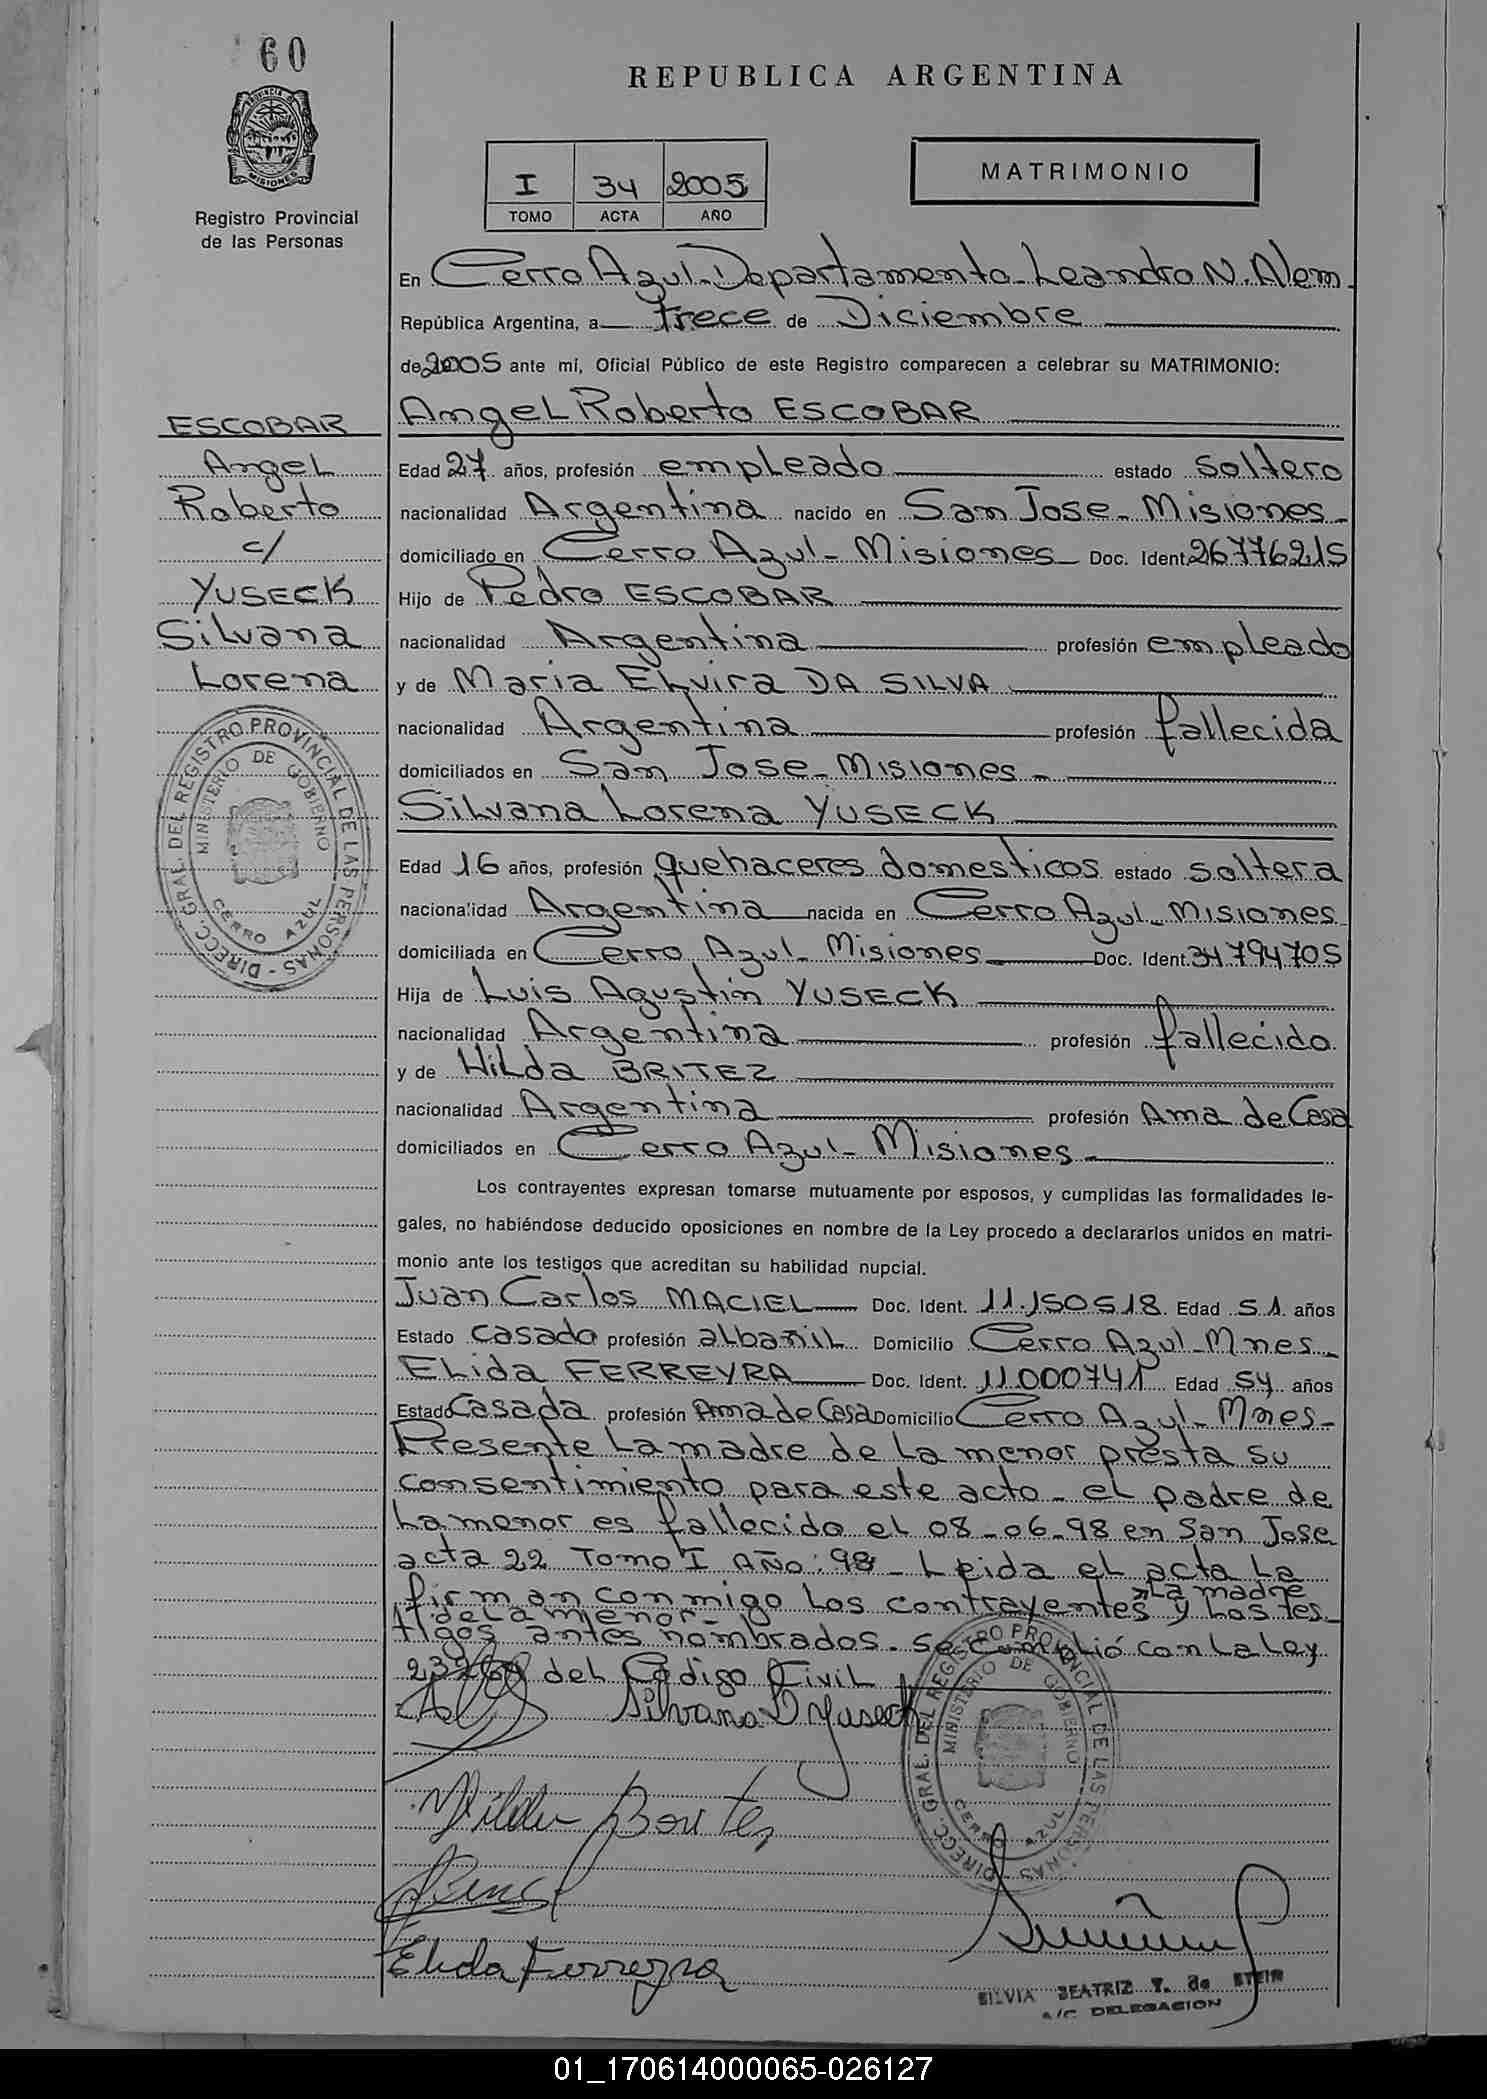 60
REPUBLICA ARGENTINA
PROVINCIA DE
MISIONES
Registro Provincial
de las Personas
MATRIMONIO
I 34 2005
TOMO ACTA AÑO
En Cerro Azul - Departamento - Leandro N. Alem -
República Argentina, a trece de Diciembre
de 2005 ante mí, Oficial Público de este Registro comparecen a celebrar su MATRIMONIO:
ESCOBAR
Angel
Roberto
c/
YUSECK
Silvana
Lorena
Angel Roberto ESCOBAR
Edad 27 años, profesión empleado estado soltero
nacionalidad Argentina nacido en San Jose - Misiones -
domiciliado en Cerro Azul - Misiones - Doc. Ident. 26776215
Hijo de Pedro ESCOBAR
nacionalidad Argentina profesión empleado
y de Maria Elvira DA SILVA
nacionalidad Argentina profesión fallecida
domiciliados en San Jose - Misiones -
Silvana Lorena YUSECK
Edad 16 años, profesión quehaceres domesticos estado soltera
nacionalidad Argentina nacida en Cerro Azul - Misiones
domiciliada en Cerro Azul - Misiones Doc. Ident. 34794705
Hija de Luis Agustin YUSECK
nacionalidad Argentina profesión fallecido
y de Hilda BRITEZ
nacionalidad Argentina profesión Ama de Casa
domiciliados en Cerro Azul - Misiones -
Los contrayentes expresan tomarse mutuamente por esposos, y cumplidas las formalidades le-
gales, no habiéndose deducido oposiciones en nombre de la Ley procedo a declararlos unidos en matri-
monio ante los testigos que acreditan su habilidad nupcial.
Juan Carlos MACIEL Doc. Ident. 11.150518 Edad 51 años
Estado casado profesión albañil Domicilio Cerro Azul - Mnes -
Elida FERREYRA Doc. Ident. 11000741 Edad 54 años
Estado Casada profesión Ama de Casa Domicilio Cerro Azul - Mnes -
Presente la madre de la menor presta su
consentimiento para este acto - el padre de
la menor es fallecido el 08-06-98 en San Jose
acta 22 Tomo I Año: 98 - Leida el acta la
firman conmigo los contrayentes la madre y los tes-
de la menor -
tigos antes nombrados. se cumplió con la Ley
del Codigo Civil
Silvana L Yuseck
Hilda Britez
Elida Ferreyra
DIRECC. GRAL. DEL REGISTRO PROVINCIAL DE LAS PERSONAS -
MINISTERIO DE GOBIERNO
CERRO AZUL
DIRECC. GRAL. DEL REGISTRO PROVINCIAL DE LAS PERSONAS -
MINISTERIO DE GOBIERNO
CERRO AZUL
SILVIA BEATRIZ Y. de STEIN
A/C DELEGACION
01_170614000065-026127